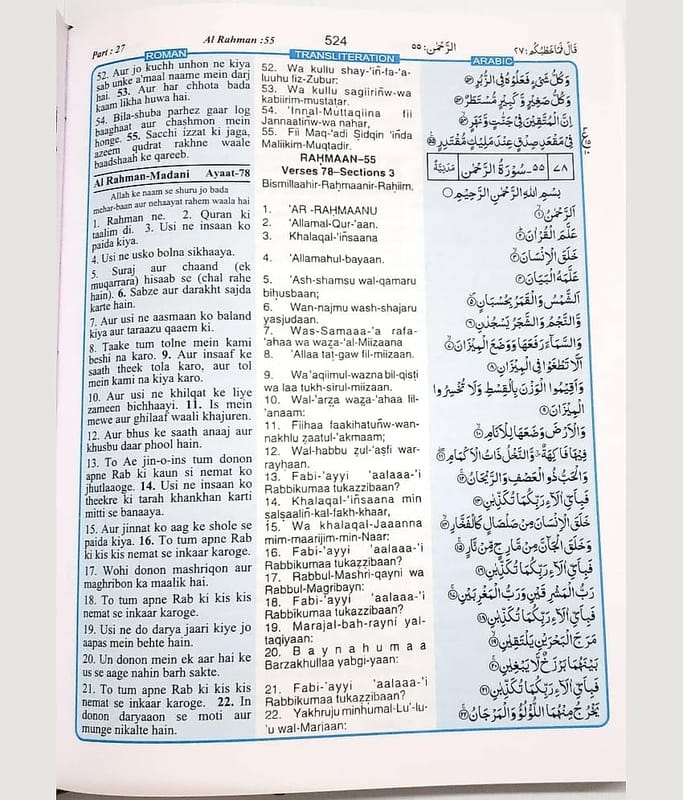 Part : 27
Al Rahman :55
524
الرَّحْمٰن: ٥٥
قَالَ فَمَا خَطْبُكُم: ٢٧
ROMAN
52. Aur jo kuchh unhon ne kiya
sab unke a'maal naame mein darj
hai. 53. Aur har chhota bada
kaam likha huwa hai.
54. Bila-shuba parhez gaar log
baaghaat aur chashmon mein
honge. 55. Sacchi izzat ki jaga,
azeem qudrat rakhne waale
baadshaah ke qareeb.
Al Rahman-Madani Ayaat-78
Allah ke naam se shuru jo bada
mehar-baan aur nehaayat rahem waala hai
1. Rahman ne. 2. Quran ki
taalim di. 3. Usi ne insaan ko
paida kiya.
4. Usi ne usko bolna sikhaaya.
5. Suraj aur chaand (ek
muqarrara) hisaab se (chal rahe
hain). 6. Sabze aur darakht sajda
karte hain.
7. Aur usi ne aasmaan ko baland
kiya aur taraazu qaaem ki.
8. Taake tum tolne mein kami
beshi na karo. 9. Aur insaaf ke
saath theek tola karo, aur tol
mein kami na kiya karo.
10. Aur usi ne khilqat ke liye
zameen bichhaayi. 11. Is mein
mewe aur ghilaaf waali khajuren.
12. Aur bhus ke saath anaaj aur
khusbu daar phool hain.
13. To Ae jin-o-ins tum donon
apne Rab ki kaun si nemat ko
jhutlaaoge. 14. Usi ne insaan ko
theekre ki tarah khankhan karti
mitti se banaaya.
15. Aur jinnat ko aag ke shole se
paida kiya. 16. To tum apne Rab
ki kis kis nemat se inkaar karoge.
17. Wohi donon mashriqon aur
maghribon ka maalik hai.
18. To tum apne Rab ki kis kis
nemat se inkaar karoge.
19. Usi ne do darya jaari kiye jo
aapas mein behte hain.
20. Un donon mein ek aar hai ke
us se aage nahin barh sakte.
21. To tum apne Rab ki kis kis
nemat se inkaar karoge. 22. In
donon daryaaon se moti aur
munge nikalte hain.
TRANSLITERATION
52. Wa kullu shay-'iñ-fa-'a-
luuhu fiz-Zubur:
53. Wa kullu sagiiriñw-wa
kabiirim-mustaṭar.
54. 'Innal-Muttaqiina fii
Jannaatiñw-wa nahar,
55. Fii Maq-'adi Ṣidqin 'iñda
Maliikim-Muqtadir.
RAḤMAAN–55
Verses 78–Sections 3
Bismillaahir-Raḥmaanir-Raḥiim.
1. 'AR -RAḤMAANU
2. 'Allamal-Qur-'aan.
3. Khalaqal-'iñsaana
4. 'Allamahul-bayaan.
5. 'Ash-shamsu wal-qamaru
biḥusbaan;
6. Wan-najmu wash-shajaru
yasjudaan.
7. Was-Samaaa-'a rafa-
'ahaa wa waẓa-'al-Miizaana
8. 'Allaa taṭ-gaw fil-miizaan.
9. Wa'aqiimul-wazna bil-qisṭi
wa laa tukh-sirul-miizaan.
10. Wal-'arẓa waẓa-'ahaa lil-
'anaam:
11. Fiihaa faakihatuñw-wan-
nakhlu ẓaatul-'akmaam;
12. Wal-ḥabbu ẓul-'aṣfi war-
rayḥaan.
13. Fabi-'ayyi 'aalaaa-'i
Rabbikumaa tukaẓẓibaan?
14. Khalaqal-'iñsaana min
ṣalṣaaliñ-kal-fakh-khaar,
15. Wa khalaqal-Jaaanna
mim-maarijim-min-Naar:
16. Fabi-'ayyi 'aalaaa-'i
Rabbikumaa tukaẓẓibaan?
17. Rabbul-Mashri-qayni wa
Rabbul-Magribayn:
18. Fabi-'ayyi 'aalaaa-'i
Rabbikumaa tukaẓẓibaan?
19. Marajal-baḥ-rayni yal-
taqiyaan:
20. Baynahumaa
Barzakhullaa yabgi-yaan:
21. Fabi-'ayyi 'aalaaa-'i
Rabbikumaa tukaẓẓibaan?
22. Yakhruju minhumal-Lu'-lu-
'u wal-Marjaan:
ARABIC
وَكُلُّ شَيْءٍ فَعَلُوْهُ فِي الزُّبُرِ ٥٢
وَكُلُّ صَغِيْرٍ وَّكَبِيْرٍ مُّسْتَطَرٌ ٥٣
اِنَّ الْمُتَّقِيْنَ فِيْ جَنّٰتٍ وَّنَهَرٍ ٥٤
فِيْ مَقْعَدِ صِدْقٍ عِنْدَ مَلِيْكٍ مُّقْتَدِرٍ ٥٥
٧٨ ٥٥-سُوْرَةُ الرَّحْمٰنِ مَدَنِيَّةٌ
بِسْمِ اللّٰهِ الرَّحْمٰنِ الرَّحِيْمِ
اَلرَّحْمٰنُ ١
عَلَّمَ الْقُرْاٰنَ ٢
خَلَقَ الْاِنْسَانَ ٣
عَلَّمَهُ الْبَيَانَ ٤
اَلشَّمْسُ وَالْقَمَرُ بِحُسْبَانٍ ٥
وَّالنَّجْمُ وَالشَّجَرُ يَسْجُدٰنِ ٦
وَالسَّمَآءَ رَفَعَهَا وَوَضَعَ الْمِيْزَانَ ٧
اَلَّا تَطْغَوْا فِي الْمِيْزَانِ ٨
وَاَقِيْمُوا الْوَزْنَ بِالْقِسْطِ وَلَا تُخْسِرُوا
الْمِيْزَانَ ٩
وَالْاَرْضَ وَضَعَهَا لِلْاَنَامِ ١٠
فِيْهَا فَاكِهَةٌ وَّالنَّخْلُ ذَاتُ الْاَكْمَامِ ١١
وَالْحَبُّ ذُو الْعَصْفِ وَالرَّيْحَانُ ١٢
فَبِاَيِّ اٰلَآءِ رَبِّكُمَا تُكَذِّبٰنِ ١٣
خَلَقَ الْاِنْسَانَ مِنْ صَلْصَالٍ كَالْفَخَّارِ ١٤
وَخَلَقَ الْجَآنَّ مِنْ مَّارِجٍ مِّنْ نَّارٍ ١٥
فَبِاَيِّ اٰلَآءِ رَبِّكُمَا تُكَذِّبٰنِ ١٦
رَبُّ الْمَشْرِقَيْنِ وَرَبُّ الْمَغْرِبَيْنِ ١٧
فَبِاَيِّ اٰلَآءِ رَبِّكُمَا تُكَذِّبٰنِ ١٨
مَرَجَ الْبَحْرَيْنِ يَلْتَقِيٰنِ ١٩
بَيْنَهُمَا بَرْزَخٌ لَّا يَبْغِيٰنِ ٢٠
فَبِاَيِّ اٰلَآءِ رَبِّكُمَا تُكَذِّبٰنِ ٢١
يَخْرُجُ مِنْهُمَا اللُّؤْلُؤُ وَالْمَرْجَانُ ٢٢